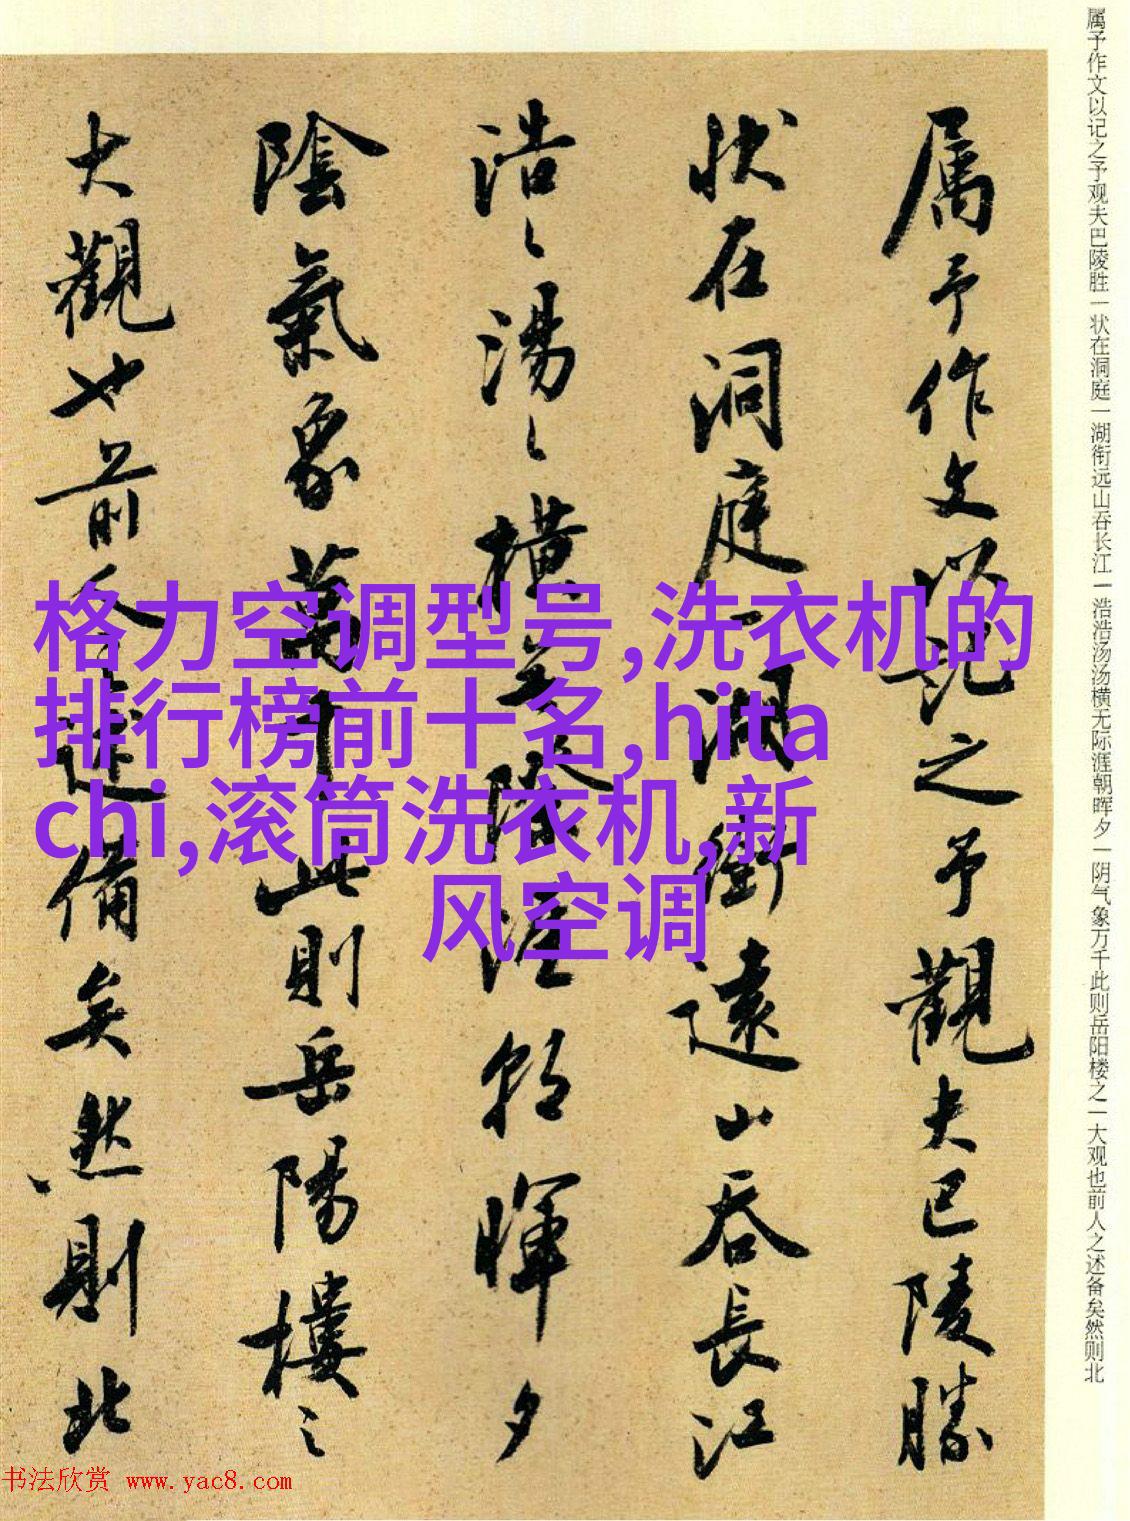 属予作文以记之予观夫巴陵胜一状在洞庭一湖衔远山吞长江一浩浩汤汤横无际涯朝晖夕一阴气象万千此则岳阳楼之一大观也前人之述备矣然则北
属予作文以記之予觀夫巴陵勝
状在洞庭一湖銜遠山吞長江
浩〻湯〻横無際涯朝暉夕
陰氣象萬千此則岳陽樓之
大觀也前人之述備矣然則北
格力空调型号,洗衣机的
排行榜前十名,hita
chi,滚筒洗衣机,新
风空调
书法欣赏 www.yac8.com